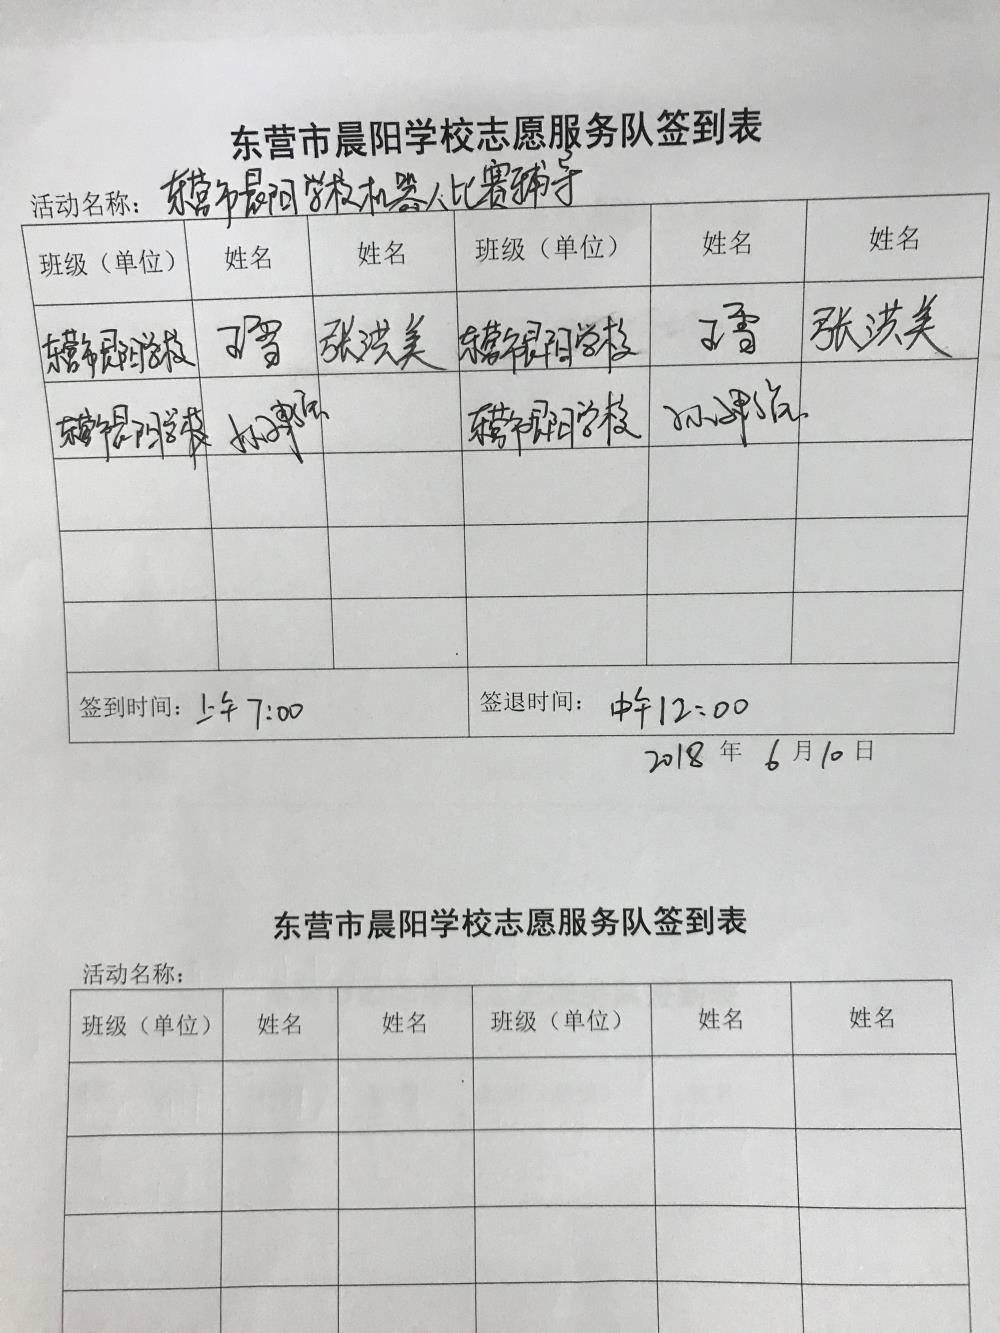 东营市晨阳学校志愿服务队签到表
活动名称：东营市晨阳学校机器人比赛辅导
班级（单位） 姓名 姓名 班级（单位） 姓名 姓名
东营市晨阳学校 王雪 张洪美 东营市晨阳学校 王雪 张洪美
东营市晨阳学校 孙 东营市晨阳学校 孙
签到时间：上午7:00 签退时间：中午12:00
2018年6月10日
东营市晨阳学校志愿服务队签到表
活动名称：
班级（单位） 姓名 姓名 班级（单位） 姓名 姓名